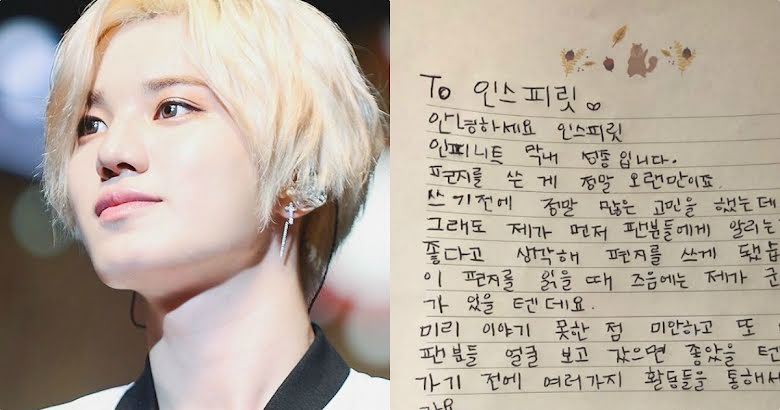 To 인스피릿
안녕하세요 인스피릿
인피니트 막내 성종입니다.
편지를 쓴 게 정말 오랜만이죠
쓰기전에 정말 많은 고민을 했는데
그래도 제가 먼저 팬분들에게 알리는
좋다고 생각해 편지를 쓰게 됐습
이 편지를 읽을 때 즈음에는 제가 군
가 있을 텐데요.
미리 이야기 못한 점 미안하고 또
팬분들 얼굴 보고 갔으면 좋았을 텐
가기 전에 여러가지 활동들을 통해서